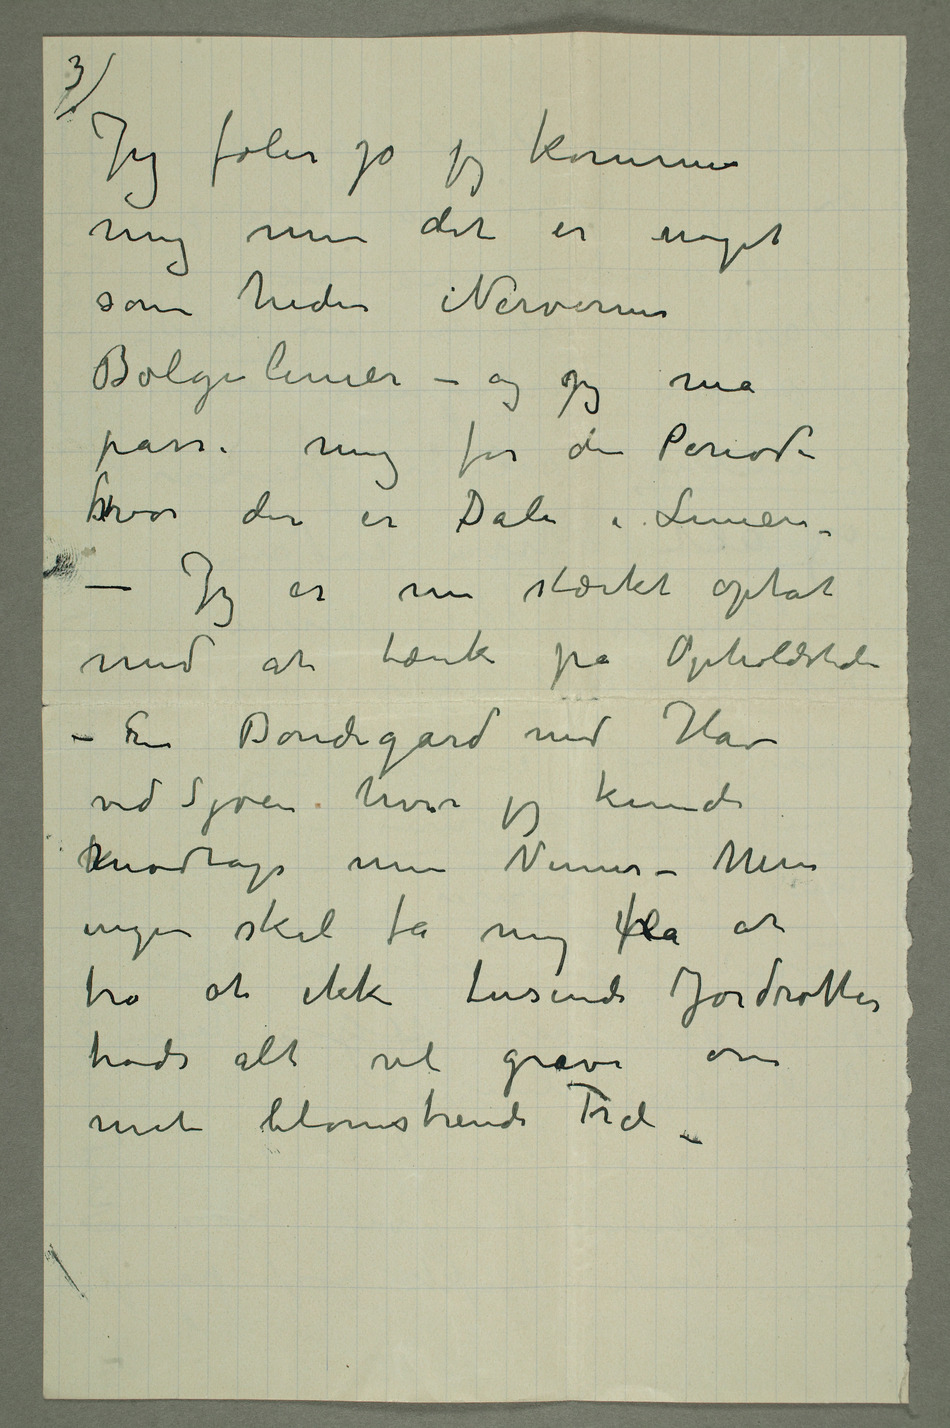 3)
Jeg føler jo jeg kommer
mig men det er noget
som heder Nervernes
Bølgelinier – og jeg må
passe mig for den Periode
hvor der er Dale i Linien –
– Jeg er nu stærkt optat
med at tænke på Opholdstedet
– En Bondegård med Have
ved Sjøen hvor jeg kunde
modtage mine Venner – Men
ingen skal få mig fra at
tro at ikke tusinde Jordrotter
trods alt vil grave om
mit blomstrende Træ –